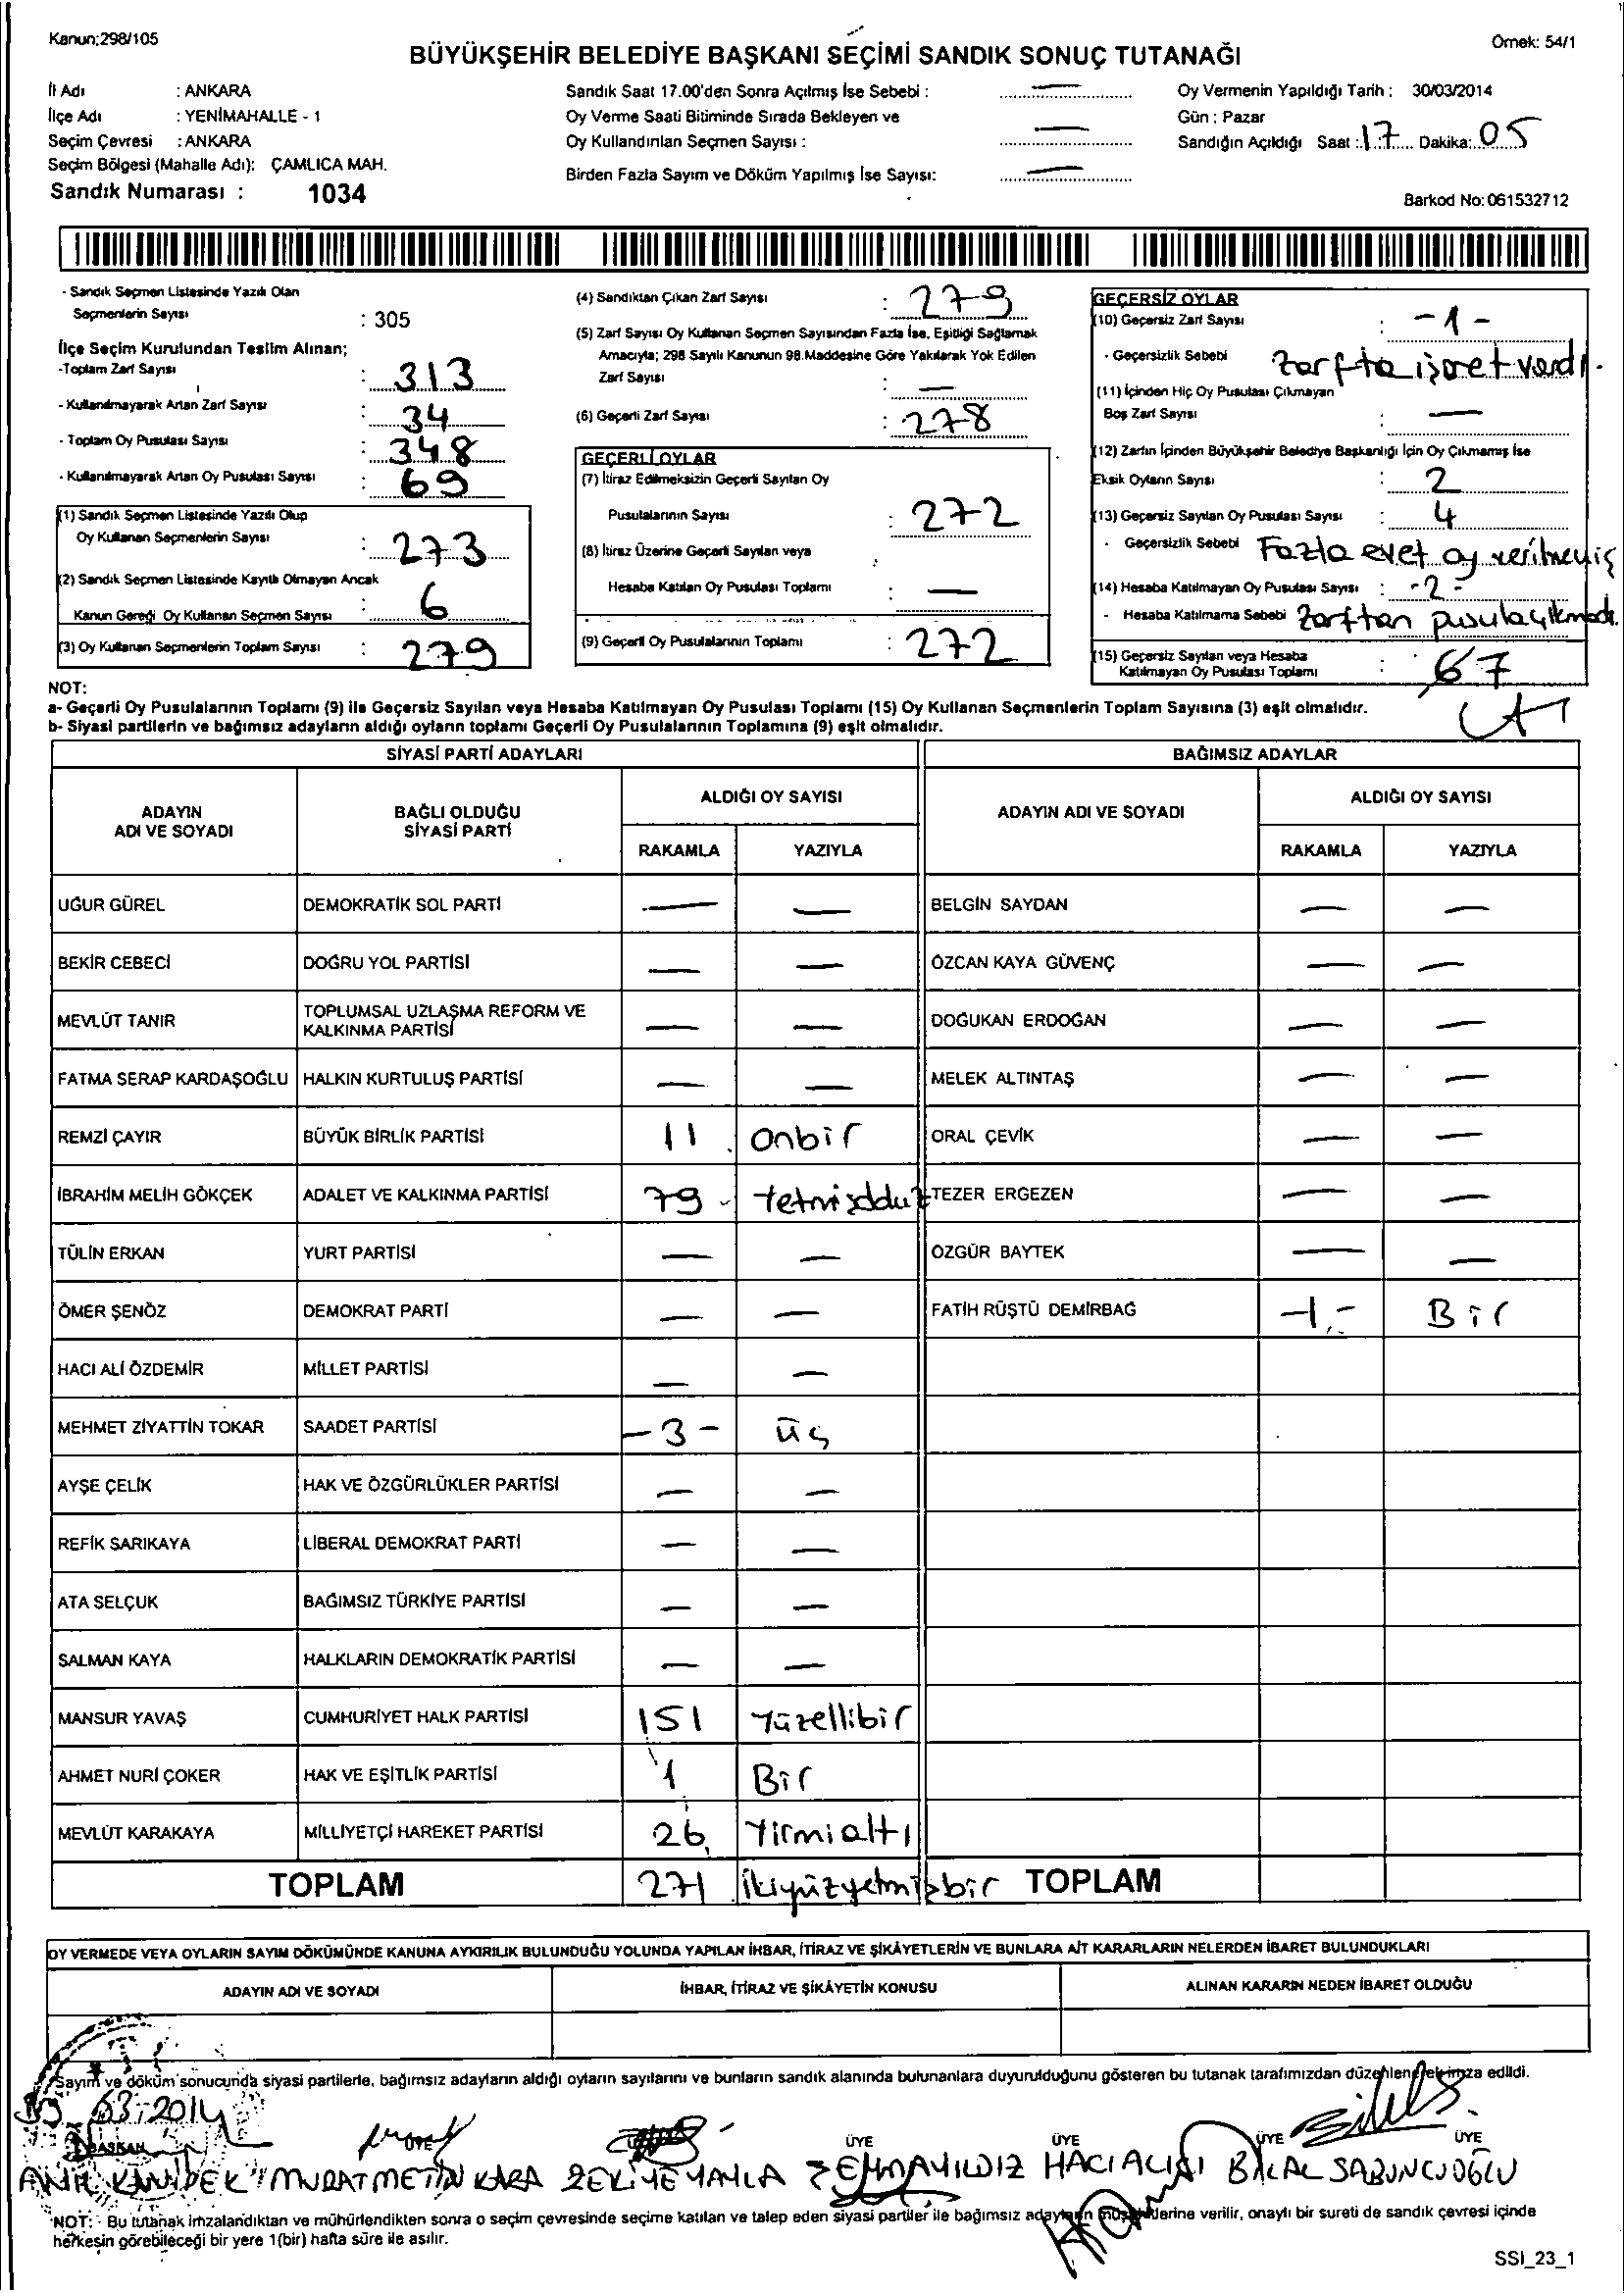 Kanun;298/105
Örnek: 54/1
BÜYÜKŞEHİR BELEDİYE BAŞKANI SEÇİMİ SANDIK SONUÇ TUTANAĞI
İl Adı : ANKARA
İlçe Adı : YENİMAHALLE - 1
Seçim Çevresi : ANKARA
Seçim Bölgesi (Mahalle Adı): ÇAMLICA MAH.
Sandık Numarası : 1034
Sandık Saat 17.00'den Sonra Açılmış İse Sebebi : —
Oy Verme Saati Bitiminde Sırada Bekleyen ve
Oy Kullandırılan Seçmen Sayısı : —
Birden Fazla Sayım ve Döküm Yapılmış İse Sayısı: —
Oy Vermenin Yapıldığı Tarih : 30/03/2014
Gün : Pazar
Sandığın Açıldığı Saat : 17 Dakika: 05
Barkod No: 061532712
- Sandık Seçmen Listesinde Yazılı Olan
Seçmenlerin Sayısı : 305
İlçe Seçim Kurulundan Teslim Alınan;
-Toplam Zarf Sayısı : 313
- Kullanılmayarak Artan Zarf Sayısı : 34
- Toplam Oy Pusulası Sayısı : 348
- Kullanılmayarak Artan Oy Pusulası Sayısı : 69
(1) Sandık Seçmen Listesinde Yazılı Olup
Oy Kullanan Seçmenlerin Sayısı : 273
(2) Sandık Seçmen Listesinde Kayıtlı Olmayan Ancak
Kanun Gereği Oy Kullanan Seçmen Sayısı : 6
(3) Oy Kullanan Seçmenlerin Toplam Sayısı : 279
(4) Sandıktan Çıkan Zarf Sayısı : 279
(5) Zarf Sayısı Oy Kullanan Seçmen Sayısından Fazla İse, Eşitliği Sağlamak
Amacıyla; 298 Sayılı Kanunun 98.Maddesine Göre Yakılarak Yok Edilen
Zarf Sayısı : —
(6) Geçerli Zarf Sayısı : 278
GEÇERLİ OYLAR
(7) İtiraz Edilmeksizin Geçerli Sayılan Oy
Pusulalarının Sayısı : 272
(8) İtiraz Üzerine Geçerli Sayılan veya :
Hesaba Katılan Oy Pusulası Toplamı —
(9) Geçerli Oy Pusulalarının Toplamı : 272
GEÇERSİZ OYLAR
(10) Geçersiz Zarf Sayısı : -1-
- Geçersizlik Sebebi Zarfta işaret vardı.
(11) İçinden Hiç Oy Pusulası Çıkmayan
Boş Zarf Sayısı : —
(12) Zarfın İçinden Büyükşehir Belediye Başkanlığı İçin Oy Çıkmamış İse
Eksik Oyların Sayısı : 2
(13) Geçersiz Sayılan Oy Pusulası Sayısı : 4
- Geçersizlik Sebebi Fazla evet oy verilmeyiş
(14) Hesaba Katılmayan Oy Pusulası Sayısı : -2-
- Hesaba Katılmama Sebebi Zarftan pusula çıkmadı.
(15) Geçersiz Sayılan veya Hesaba
Katılmayan Oy Pusulası Toplamı : 7
NOT:
a- Geçerli Oy Pusulalarının Toplamı (9) ile Geçersiz Sayılan veya Hesaba Katılmayan Oy Pusulası Toplamı (15) Oy Kullanan Seçmenlerin Toplam Sayısına (3) eşit olmalıdır.
b- Siyasi partilerin ve bağımsız adayların aldığı oyların toplamı Geçerli Oy Pusulalarının Toplamına (9) eşit olmalıdır.
SİYASİ PARTİ ADAYLARI BAĞIMSIZ ADAYLAR
ADAYIN ADI VE SOYADI BAĞLI OLDUĞU SİYASİ PARTİ ALDIĞI OY SAYISI ADAYIN ADI VE SOYADI ALDIĞI OY SAYISI
RAKAMLA YAZIYLA RAKAMLA YAZIYLA
UĞUR GÜREL DEMOKRATİK SOL PARTİ — — BELGİN SAYDAN — —
BEKİR CEBECİ DOĞRU YOL PARTİSİ — — ÖZCAN KAYA GÜVENÇ — —
MEVLÜT TANIR TOPLUMSAL UZLAŞMA REFORM VE KALKINMA PARTİSİ — — DOĞUKAN ERDOĞAN — —
FATMA SERAP KARDAŞOĞLU HALKIN KURTULUŞ PARTİSİ — — MELEK ALTINTAŞ — —
REMZİ ÇAYIR BÜYÜK BİRLİK PARTİSİ 11 onbir ORAL ÇEVİK — —
İBRAHİM MELİH GÖKÇEK ADALET VE KALKINMA PARTİSİ 79 - TEZER ERGEZEN — —
TÜLİN ERKAN YURT PARTİSİ — — ÖZGÜR BAYTEK — —
ÖMER ŞENÖZ DEMOKRAT PARTİ — — FATİH RÜŞTÜ DEMİRBAĞ -1- Bir
HACI ALİ ÖZDEMİR MİLLET PARTİSİ — —
MEHMET ZİYATTİN TOKAR SAADET PARTİSİ -3- üç
AYŞE ÇELİK HAK VE ÖZGÜRLÜKLER PARTİSİ — —
REFİK SARIKAYA LİBERAL DEMOKRAT PARTİ — —
ATA SELÇUK BAĞIMSIZ TÜRKİYE PARTİSİ — —
SALMAN KAYA HALKLARIN DEMOKRATİK PARTİSİ — —
MANSUR YAVAŞ CUMHURİYET HALK PARTİSİ 151 Yüzellibir
AHMET NURİ ÇOKER HAK VE EŞİTLİK PARTİSİ 1 Bir
MEVLÜT KARAKAYA MİLLİYETÇİ HAREKET PARTİSİ 26 Yirmialtı
TOPLAM 271 İkiyüzyetmişbir TOPLAM
OY VERMEDE VEYA OYLARIN SAYIM DÖKÜMÜNDE KANUNA AYKIRILIK BULUNDUĞU YOLUNDA YAPILAN İHBAR, İTİRAZ VE ŞİKÂYETLERİN VE BUNLARA AİT KARARLARIN NELERDEN İBARET BULUNDUKLARI
ADAYIN ADI VE SOYADI İHBAR, İTİRAZ VE ŞİKÂYETİN KONUSU ALINAN KARARIN NEDEN İBARET OLDUĞU
Sayım ve döküm sonucunda siyasi partilerle, bağımsız adayların aldığı oyların sayılarını ve bunların sandık alanında bulunanlara duyurulduğunu gösteren bu tutanak tarafımızdan düzenlenerek imza edildi.
30.03.2014
BAŞKAN ÜYE ÜYE ÜYE ÜYE ÜYE
MURAT METİN KARA ZEKİYE YAYLA HACI ALİ BİLAL SABUNCUOĞLU
NOT: - Bu tutanak imzalandıktan ve mühürlendikten sonra o seçim çevresinde seçime katılan ve talep eden siyasi partiler ile bağımsız adayların müşahitlerine verilir, onaylı bir sureti de sandık çevresi içinde
herkesin görebileceği bir yere 1(bir) hafta süre ile asılır.
SSI_23_1